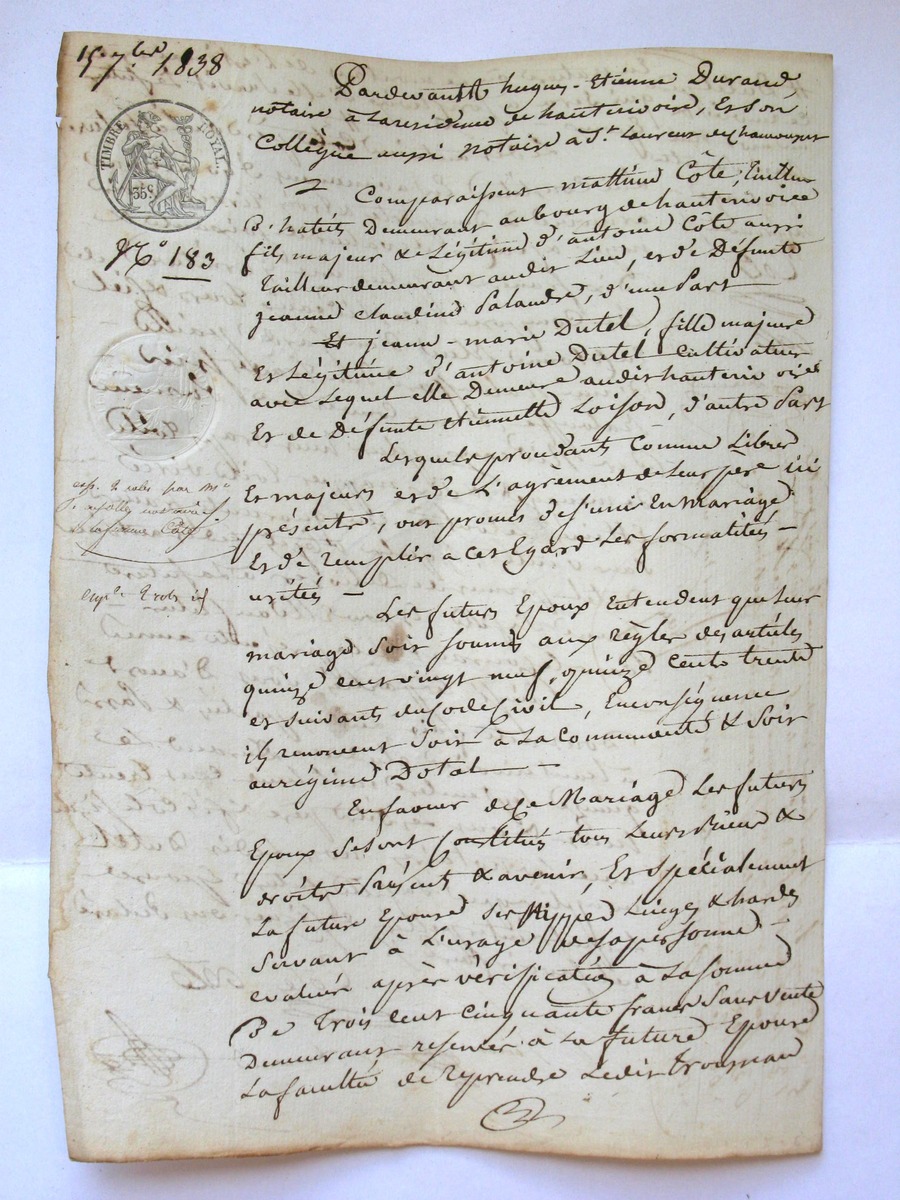 15 7.bre 1838
TIMBRE ROYAL.
35 c.
N.o 183
Pardevant M hugues-Etienne Durand,
notaire à la residence de hauterivoire, et son
Collègue aussi notaire à St. Laurent de Chamousset
Comparaissent mathieu Côte, tailleur
D'habits Demeurant au bourg de hauterivoire
fils majeur & Légitime d'antoine Côte aussi
Tailleur demeurant audit Lieu, et de Défunte
jeanne Claudine Palandre, d'une Part
Et jeanne-marie Dutel, fille majeure
Et Légitime d'antoine Dutel Cultivateur
avec Lequel elle Demeure audit hauterivoire
Et de Défunte Etiennette Loison, d'autre Part
Lesquels procédants Comme Libres
Et majeurs et de L'agrément de Leur père ici
présents, ont promis de s'unir En mariage
Et de remplir a cet Egard Les formalités
usitées
Les futurs Epoux Entendent que Leur
mariage Soit Soumis aux règles des articles
quinze cent vingt neuf, quinze cents trente
et suivants du Code Civil, En conséquence
ils renoncent Soit à La Communauté & Soit
au régime Dotal
En faveur de Ce Mariage Les futurs
Epoux Se sont Constitués tous Leurs Biens &
droits Présents & avenir, Et Spécialement
La future Epouse Ses nippes Linges & hardes
Servant à L'usage de sa personne
evalués après vérification à La Somme
De Trois Cent Cinquante francs Sans Vente
Demeurant reservée à La future Epouse
La faculté de reprendre Ledit trousseau